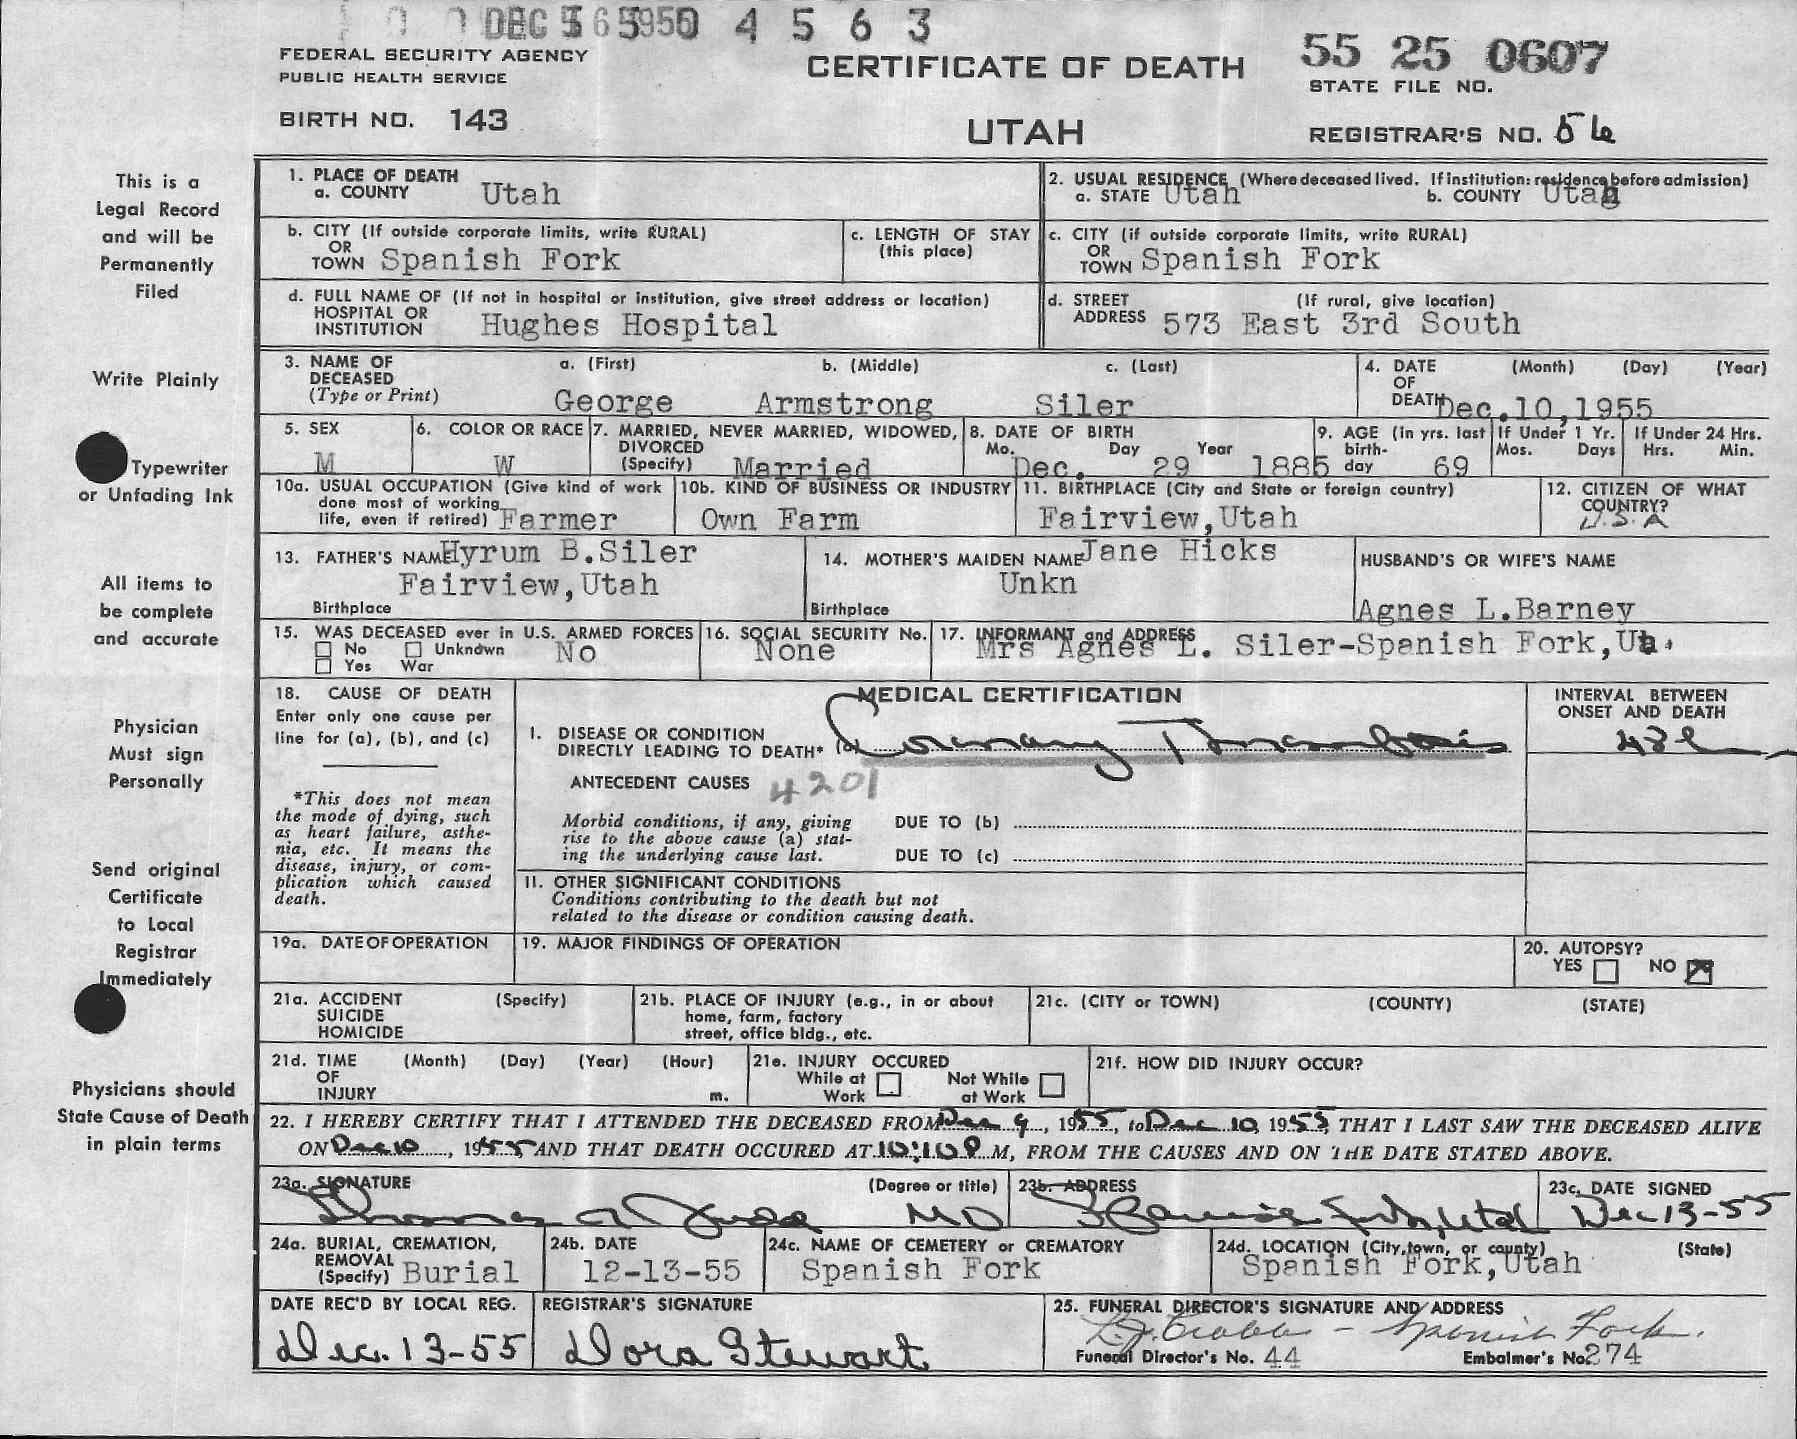 DEC 4 5 6 3
FEDERAL SECURITY AGENCY
PUBLIC HEALTH SERVICE
BIRTH NO. 143
CERTIFICATE OF DEATH
UTAH
55 25 0607
STATE FILE NO.
REGISTRAR'S NO. 56
This is a
Legal Record
and will be
Permanently
Filed
Write Plainly
Typewriter
or Unfading Ink
All items to
be complete
and accurate
Physician
Must sign
Personally
Send original
Certificate
to Local
Registrar
Immediately
Physicians should
State Cause of Death
in plain terms
1. PLACE OF DEATH
a. COUNTY Utah
2. USUAL RESIDENCE (Where deceased lived. If institution: residence before admission)
a. STATE Utah b. COUNTY Utah
b. CITY (If outside corporate limits, write RURAL)
OR
TOWN Spanish Fork
c. LENGTH OF STAY
(this place)
c. CITY (if outside corporate limits, write RURAL)
OR
TOWN Spanish Fork
d. FULL NAME OF (If not in hospital or institution, give street address or location)
HOSPITAL OR
INSTITUTION Hughes Hospital
d. STREET (If rural, give location)
ADDRESS 573 East 3rd South
3. NAME OF a. (First) b. (Middle) c. (Last)
DECEASED
(Type or Print) George Armstrong Siler
4. DATE (Month) (Day) (Year)
OF
DEATH Dec.10,1955
5. SEX
M
6. COLOR OR RACE
W
7. MARRIED, NEVER MARRIED, WIDOWED,
DIVORCED
(Specify) Married
8. DATE OF BIRTH
Mo. Day Year
Dec. 29 1885
9. AGE (In yrs. last
birth-
day 69
If Under 1 Yr.
Mos. Days
If Under 24 Hrs.
Hrs. Min.
10a. USUAL OCCUPATION (Give kind of work
done most of working
life, even if retired) Farmer
10b. KIND OF BUSINESS OR INDUSTRY
Own Farm
11. BIRTHPLACE (City and State or foreign country)
Fairview,Utah
12. CITIZEN OF WHAT
COUNTRY?
U.S.A
13. FATHER'S NAME Hyrum B.Siler
Fairview,Utah
Birthplace
14. MOTHER'S MAIDEN NAME Jane Hicks
Unkn
Birthplace
HUSBAND'S OR WIFE'S NAME
Agnes L.Barney
15. WAS DECEASED ever in U.S. ARMED FORCES
No Unknown No
Yes War
16. SOCIAL SECURITY No.
None
17. INFORMANT and ADDRESS
Mrs Agnes L. Siler-Spanish Fork,Ut.
18. CAUSE OF DEATH
Enter only one cause per
line for (a), (b), and (c)
*This does not mean
the mode of dying, such
as heart failure, asthe-
nia, etc. It means the
disease, injury, or com-
plication which caused
death.
MEDICAL CERTIFICATION
I. DISEASE OR CONDITION
DIRECTLY LEADING TO DEATH* (a) Coronary Thrombosis
ANTECEDENT CAUSES 4201
Morbid conditions, if any, giving
rise to the above cause (a) stat-
ing the underlying cause last.
DUE TO (b)
DUE TO (c)
II. OTHER SIGNIFICANT CONDITIONS
Conditions contributing to the death but not
related to the disease or condition causing death.
INTERVAL BETWEEN
ONSET AND DEATH
19a. DATE OF OPERATION
19. MAJOR FINDINGS OF OPERATION
20. AUTOPSY?
YES NO
21a. ACCIDENT (Specify)
SUICIDE
HOMICIDE
21b. PLACE OF INJURY (e.g., in or about
home, farm, factory
street, office bldg., etc.
21c. (CITY or TOWN) (COUNTY) (STATE)
21d. TIME (Month) (Day) (Year) (Hour)
OF
INJURY m.
21e. INJURY OCCURED
While at Work Not While at Work
21f. HOW DID INJURY OCCUR?
22. I HEREBY CERTIFY THAT I ATTENDED THE DECEASED FROM Dec 9, 1955, to Dec 10, 1955, THAT I LAST SAW THE DECEASED ALIVE
ON Dec 10, 1955 AND THAT DEATH OCCURED AT 10:10 P M, FROM THE CAUSES AND ON THE DATE STATED ABOVE.
23a. SIGNATURE (Degree or title)
Thomas MD
23b. ADDRESS
Spanish Fork, Utah
23c. DATE SIGNED
Dec 13-55
24a. BURIAL, CREMATION,
REMOVAL
(Specify) Burial
24b. DATE
12-13-55
24c. NAME OF CEMETERY or CREMATORY
Spanish Fork
24d. LOCATION (City, town, or county) (State)
Spanish Fork,Utah
DATE REC'D BY LOCAL REG.
Dec. 13-55
REGISTRAR'S SIGNATURE
Dora Stewart
25. FUNERAL DIRECTOR'S SIGNATURE AND ADDRESS
- Spanish Fork.
Funeral Director's No. 44 Embalmer's No. 274